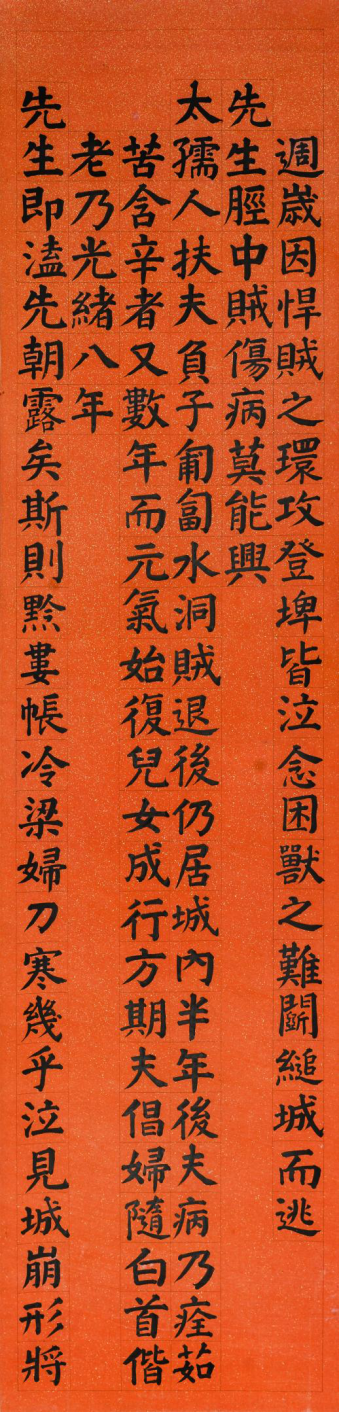 週歲因悍賊之環攻登埤皆泣念困獸之難鬭縋城而逃
先生脛中賊傷病莫能興
太孺人扶夫負子匍匐水洞賊退後仍居城內半年後夫病乃痊茹
苦含辛者又數年而元氣始復兒女成行方期夫倡婦隨白首偕
老乃光緒八年
先生即溘先朝露矣斯則黔婁帳冷梁婦刀寒幾乎泣見城崩形將